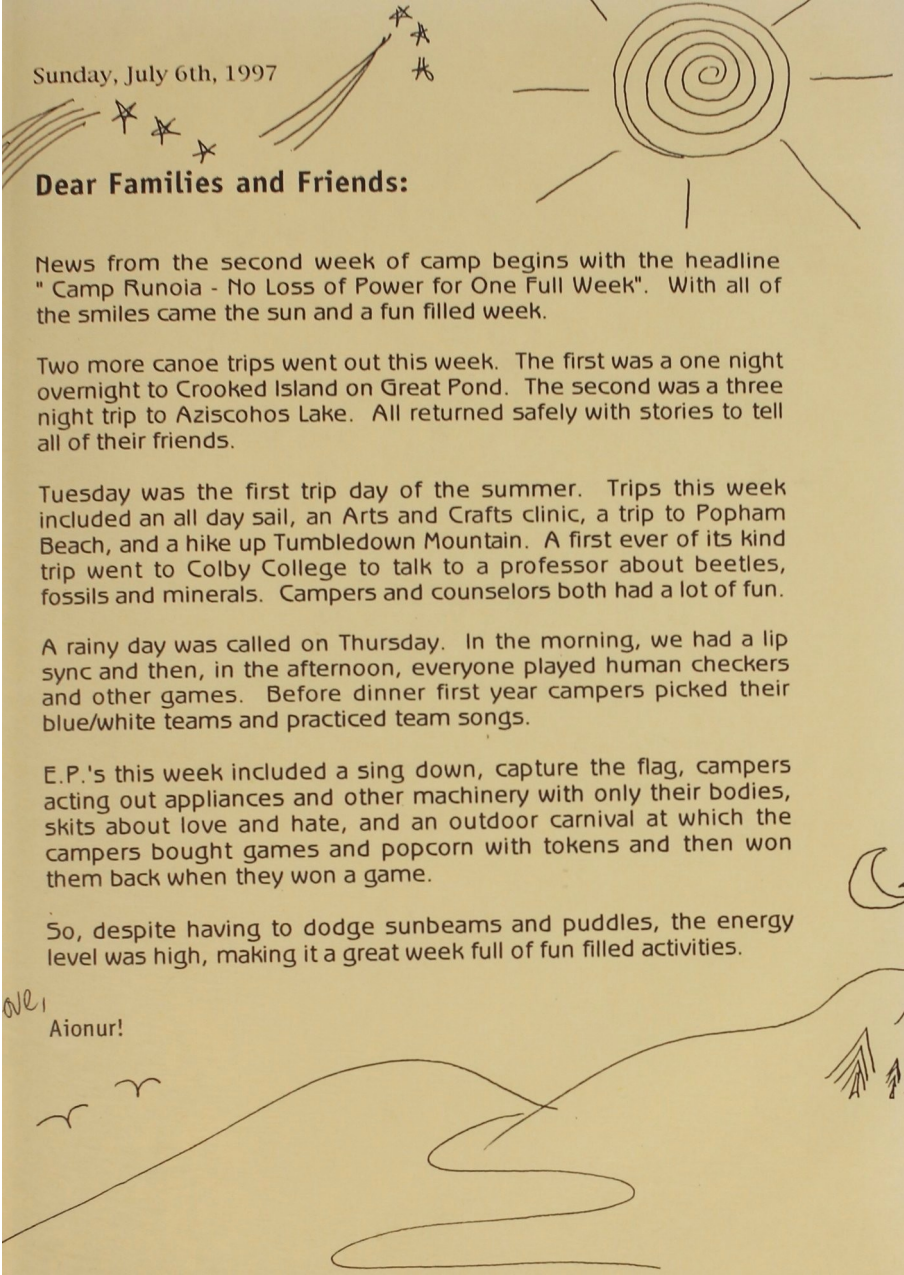 Sunday, July 6th, 1997
Dear Families and Friends:
News from the second week of camp begins with the headline
" Camp Runoia - No Loss of Power for One Full Week". With all of
the smiles came the sun and a fun filled week.
Two more canoe trips went out this week. The first was a one night
overnight to Crooked Island on Great Pond. The second was a three
night trip to Aziscohos Lake. All returned safely with stories to tell
all of their friends.
Tuesday was the first trip day of the summer. Trips this week
included an all day sail, an Arts and Crafts clinic, a trip to Popham
Beach, and a hike up Tumbledown Mountain. A first ever of its kind
trip went to Colby College to talk to a professor about beetles,
fossils and minerals. Campers and counselors both had a lot of fun.
A rainy day was called on Thursday. In the morning, we had a lip
sync and then, in the afternoon, everyone played human checkers
and other games. Before dinner first year campers picked their
blue/white teams and practiced team songs.
E.P.'s this week included a sing down, capture the flag, campers
acting out appliances and other machinery with only their bodies,
skits about love and hate, and an outdoor carnival at which the
campers bought games and popcorn with tokens and then won
them back when they won a game.
So, despite having to dodge sunbeams and puddles, the energy
level was high, making it a great week full of fun filled activities.
ove,
Aionur!